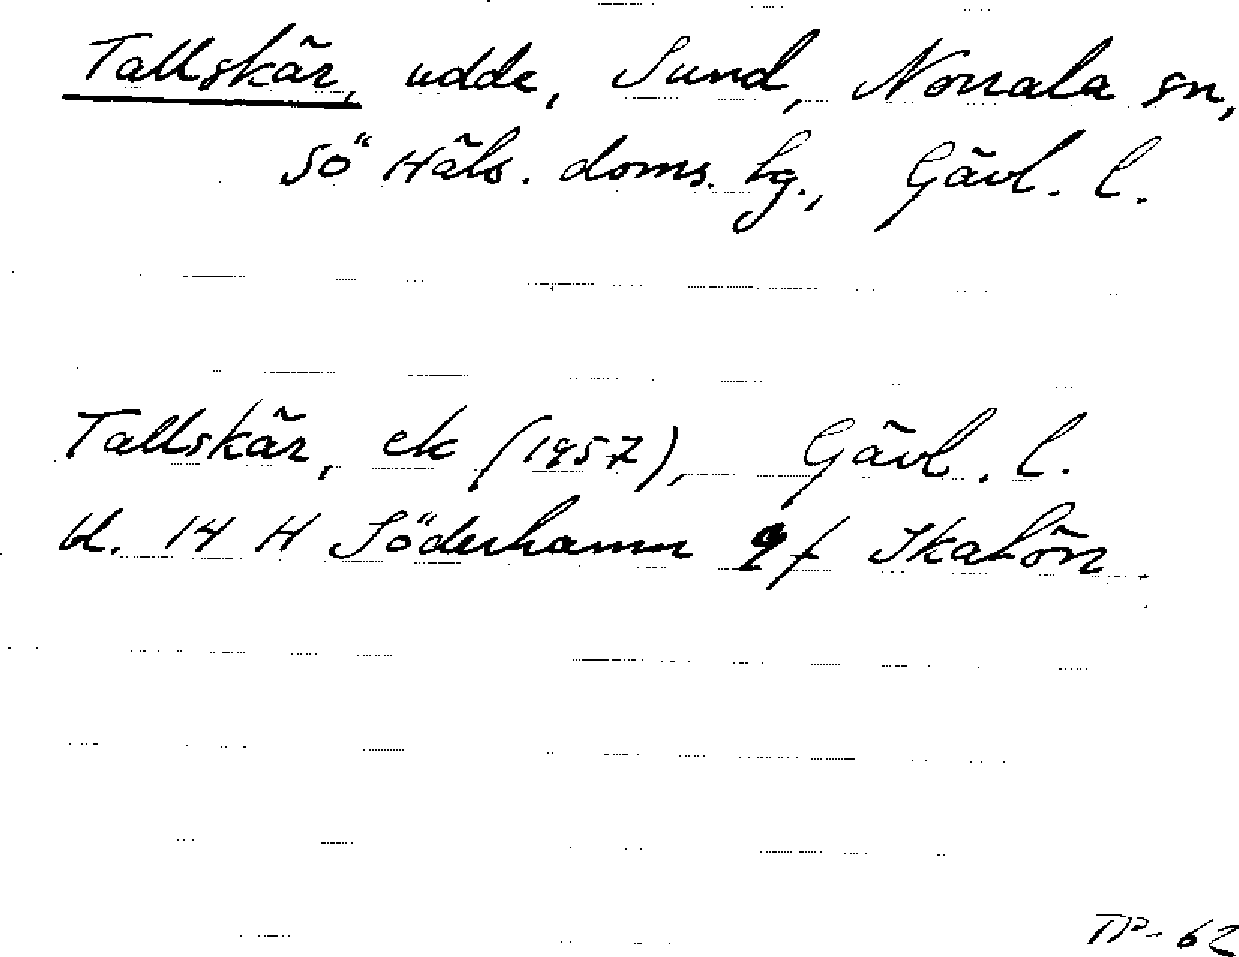 Tallskär, udde, Sund, Norrala sn,
Sö Häls. doms. hg., Gävl. l.
Tallskär, ek (1957), Gävl. l.
bl. 14 H Söderhamn 9 f Skatön
TP- 62